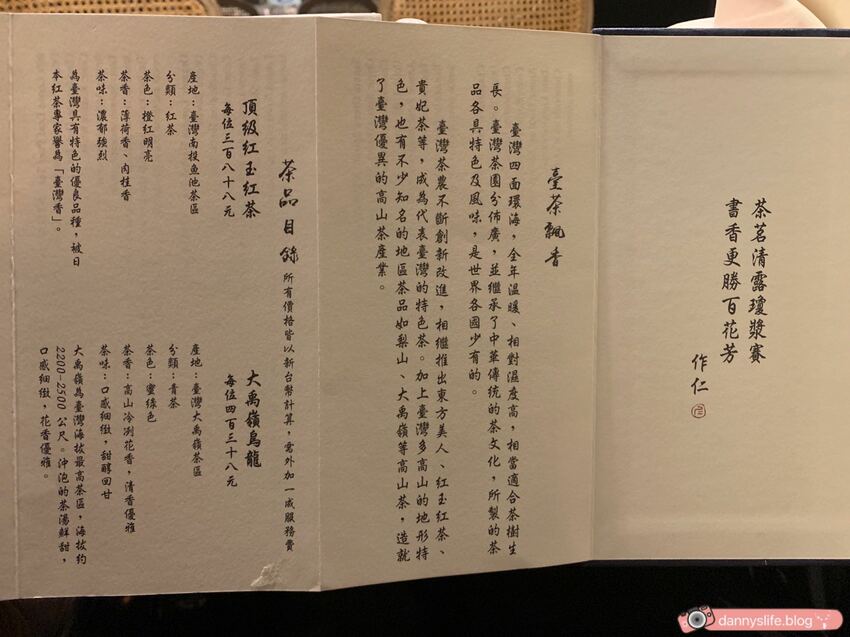 茶茗清露瓊漿賽
書香更勝百花芳
作仁
臺茶飄香
臺灣四面環海，全年溫暖、相對濕度高，相當適合茶樹生
長。臺灣茶園分佈廣，並繼承了中華傳統的茶文化，所製的茶
品各具特色及風味，是世界各國少有的。
臺灣茶農不斷創新改進，相繼推出東方美人、紅玉紅茶、
貴妃茶等，成為代表臺灣的特色茶。加上臺灣多高山的地形特
色，也有不少知名的地區茶品如梨山、大禹嶺等高山茶，造就
了臺灣優異的高山茶產業。
茶品目錄 所有價格皆以新台幣計算，意外加一成服務費
頂級紅玉紅茶
每位三百八十八元
產地：臺灣南投魚池茶區
分類：紅茶
茶色：橙紅明亮
茶香：薄荷香、肉桂香
茶味：濃郁強烈
為臺灣具有特色的優良品種，被日
本紅茶專家譽為「臺灣香」。
大禹嶺烏龍
每位四百三十八元
產地：臺灣大禹嶺茶區
分類：青茶
茶色：蜜綠色
茶香：高山冷冽花香，清香優雅
茶味：口感細緻，甜醇回甘
大禹嶺為臺灣海拔最高茶區，海拔約
2200-2500 公尺。沖泡的茶湯鮮甜，
口感細緻，花香優雅。
dannyslife.blog